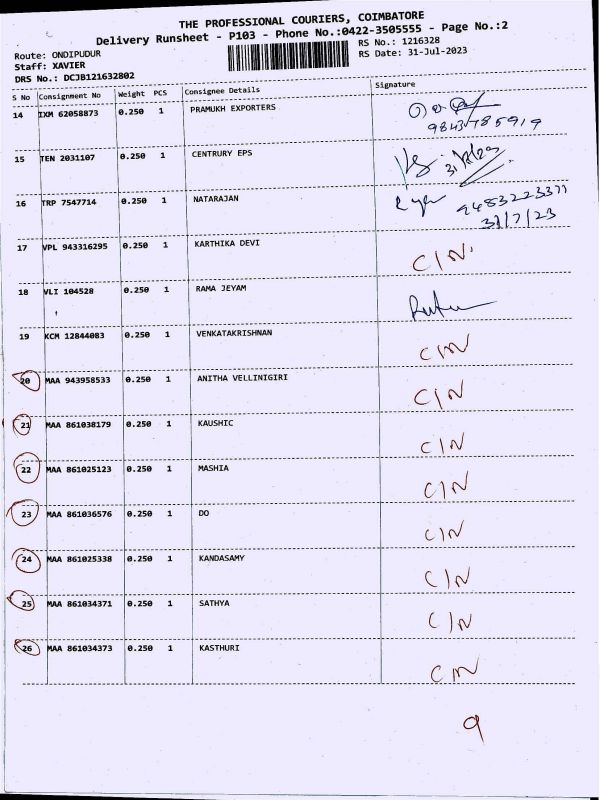 THE PROFESSIONAL COURIERS, COIMBATORE
Delivery Runsheet - P103 - Phone No.:0422-3505555 - Page No.:2
Route: ONDIPUDUR
RS No.: 1216328
Staff: XAVIER
RS Date: 31-Jul-2023
DRS No.: DCJB121632802
S No Consignment No Weight PCS Consignee Details Signature
14 IXM 62058873 0.250 1 PRAMUKH EXPORTERS
9843785919
15 TEN 2031107 0.250 1 CENTRURY EPS
31/7/23
16 TRP 7547714 0.250 1 NATARAJAN
9483223371
31/7/23
17 VPL 943316295 0.250 1 KARTHIKA DEVI C/N
18 VLI 104528 0.250 1 RAMA JEYAM
19 KCM 12844083 0.250 1 VENKATAKRISHNAN C/N
20 MAA 943958533 0.250 1 ANITHA VELLINIGIRI C/N
21 MAA 861038179 0.250 1 KAUSHIC C/N
22 MAA 861025123 0.250 1 MASHIA C/N
23 MAA 861036576 0.250 1 DO C/N
24 MAA 861025338 0.250 1 KANDASAMY C/N
25 MAA 861034371 0.250 1 SATHYA C/N
26 MAA 861034373 0.250 1 KASTHURI C/N
9